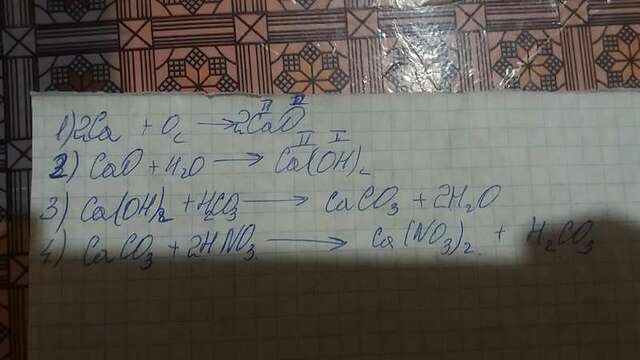 1) 2Ca + O₂ → 2CaO
2) CaO + H₂O → Ca(OH)₂
3) Ca(OH)₂ + H₂CO₃ → CaCO₃ + 2H₂O
4) CaCO₃ + 2HNO₃ → Ca(NO₃)₂ + H₂CO₃